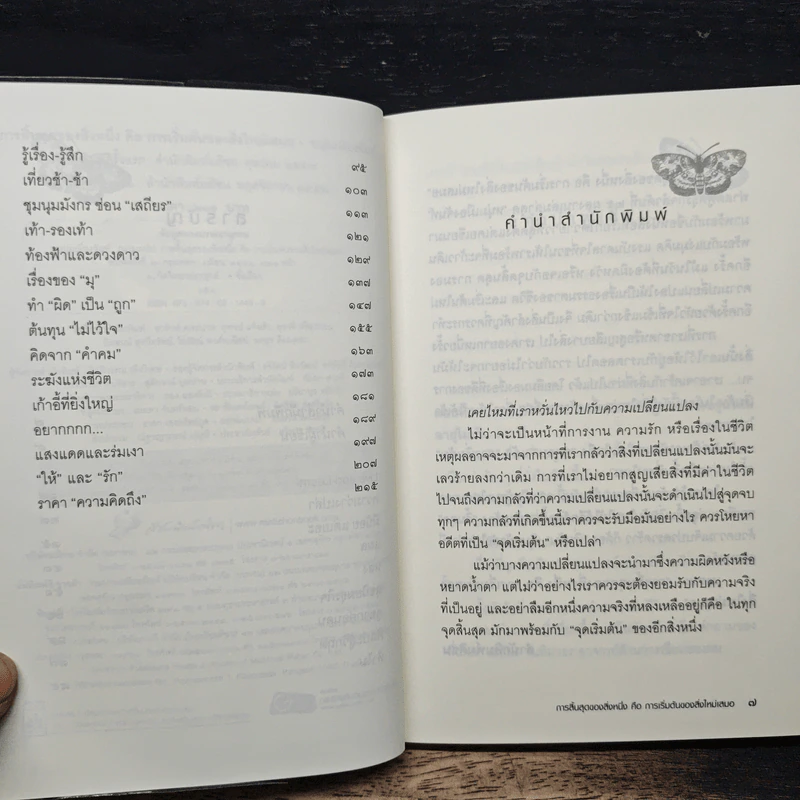 รู้เรื่อง-รู้สึก ๙๕
เที่ยวช้า-ช้า ๑๐๓
ชุมนุมมังกร ซ่อน “เสถียร” ๑๑๓
เท้า-รองเท้า ๑๒๑
ท้องฟ้าและดวงดาว ๑๒๙
เรื่องของ “มุ” ๑๓๗
ทำ “ผิด” เป็น “ถูก” ๑๔๗
ต้นทุน “ไม่ไว้ใจ” ๑๕๕
คิดจาก “คำคม” ๑๖๓
ระฆังแห่งชีวิต ๑๗๓
เก้าอี้ที่ยิ่งใหญ่ ๑๘๑
อยากกกก... ๑๘๙
แสงแดดและร่มเงา ๑๙๗
“ให้” และ “รัก” ๒๐๗
ราคา “ความคิดถึง” ๒๑๕
คำนำสำนักพิมพ์
เคยไหมที่เราหวั่นไหวไปกับความเปลี่ยนแปลง
ไม่ว่าจะเป็นหน้าที่การงาน ความรัก หรือเรื่องในชีวิต
เหตุผลอาจจะมาจากการที่เรากลัวว่าสิ่งที่เปลี่ยนแปลงนั้นมันจะ
เลวร้ายลงกว่าเดิม การที่เราไม่อยากสูญเสียสิ่งที่มีค่าในชีวิต
ไปจนถึงความกลัวที่ว่าความเปลี่ยนแปลงนั้นจะดำเนินไปสู่จุดจบ
ทุกๆ ความกลัวที่เกิดขึ้นนี้เราควรจะรับมือมันอย่างไร ควรโหยหา
อดีตที่เป็น “จุดเริ่มต้น” หรือเปล่า
แม้ว่าบางความเปลี่ยนแปลงจะนำมาซึ่งความผิดหวังหรือ
หยาดน้ำตา แต่ไม่ว่าอย่างไรเราควรจะต้องยอมรับกับความจริง
ที่เป็นอยู่ และอย่าลืมอีกหนึ่งความจริงที่หลงเหลืออยู่ก็คือ ในทุก
จุดสิ้นสุด มักมาพร้อมกับ “จุดเริ่มต้น” ของอีกสิ่งหนึ่ง
การสิ้นสุดของสิ่งหนึ่ง คือ การเริ่มต้นของสิ่งใหม่เสมอ ๗